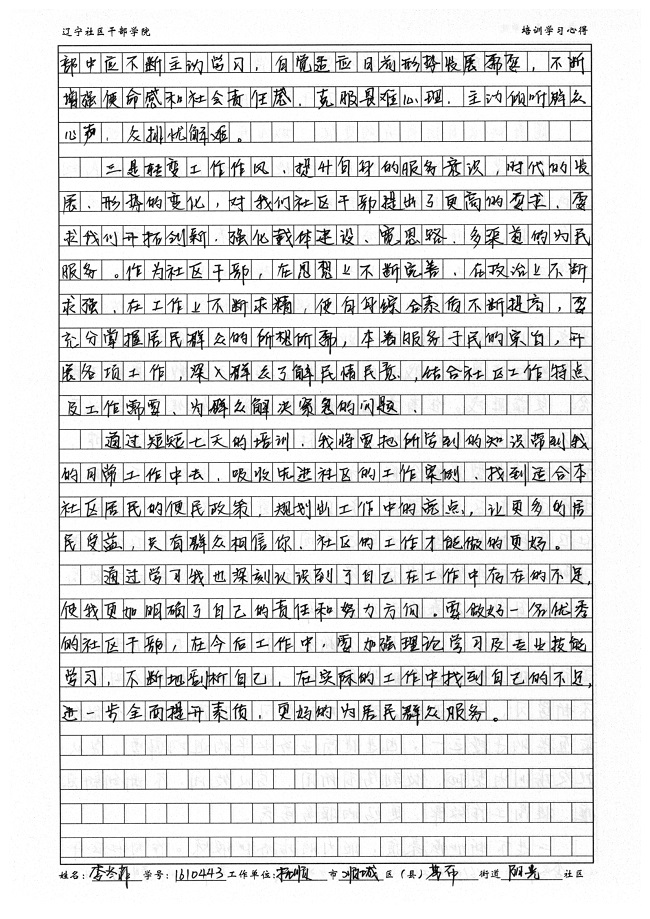 辽宁社区干部学院 培训学习心得
部中应不断主动学习，自觉适应目前形势发展需要，不断
增强使命感和社会责任感、克服畏难心理、主动倾听群众
心声、众排忧解难。
三是转变工作作风、提升自身的服务意识，时代的发
展、形势的变化，对我们社区干部提出了更高的要求、要
求我们开拓创新、强化载体建设、宽思路、多渠道的为民
服务。作为社区干部，在思想上不断完善、在政治上不断
求强、在工作上不断求精，使自身综合素质不断提高，要
充分掌握居民群众的所想所需，本着服务于民的宗旨，开
展各项工作，深入群众了解民情民意，结合社区工作特点
及工作需要、为群众解决紧急的问题、
通过短短七天的培训、我将要把所学到的知识带到我
的日常工作中去、吸收先进社区的工作案例、找到适合本
社区居民的便民政策，规划出工作中的亮点，让更多的居
民受益，只有群众相信你、社区的工作才能做的更好。
通过学习我也深刻认识到了自己在工作中存在的不足，
使我更加明确了自己的责任和努力方向。要做好一名优秀
的社区干部，在今后工作中，要加强理论学习及专业技能
学习，不断地剖析自己，在实际的工作中找到自己的不足，
进一步全面提升素质，更好的为居民群众服务。
姓名： 学号：1610443 工作单位：抚顺 市 顺城 区（县） 街道 阳光 社区